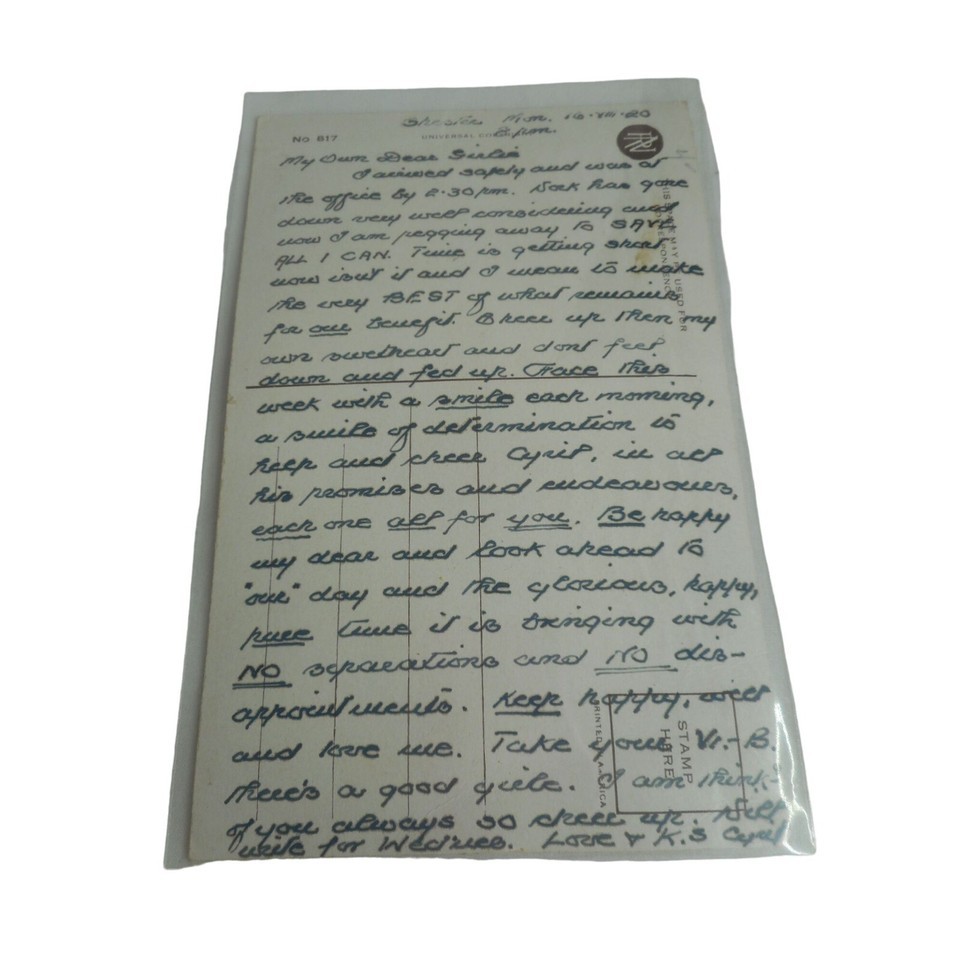 Mon. 16·VIII·20
No 817
UNIVERSAL
8 pm.
My Own Dear Girlie
I arrived safely and was at
the office by 2·30 pm. Work has gone
down very well considering and
now I am pegging away to SAVE
ALL I CAN. Time is getting short
now isn't it and I mean to make
the very BEST of what remains
for our benefit. Cheer up then my
own sweetheart and dont feel
down and fed up. Face this
week with a smile each morning,
a smile of determination to
keep and cheer Cyril, in all
his promises and endeavours,
each one all for you. Be happy
my dear and look ahead to
"our" day and the glorious, happy,
pure time it is bringing with
NO separations and NO dis-
appointments. Keep happy, well
and love me. Take your Vi.-B.
there's a good girle. I am think-
of you always so cheer up. Will
write for Wednes. Love & K.S Cyril
THIS SPACE MAY BE USED FOR
CORRESPONDENCE
PRINTED IN AMERICA
STAMP
HERE